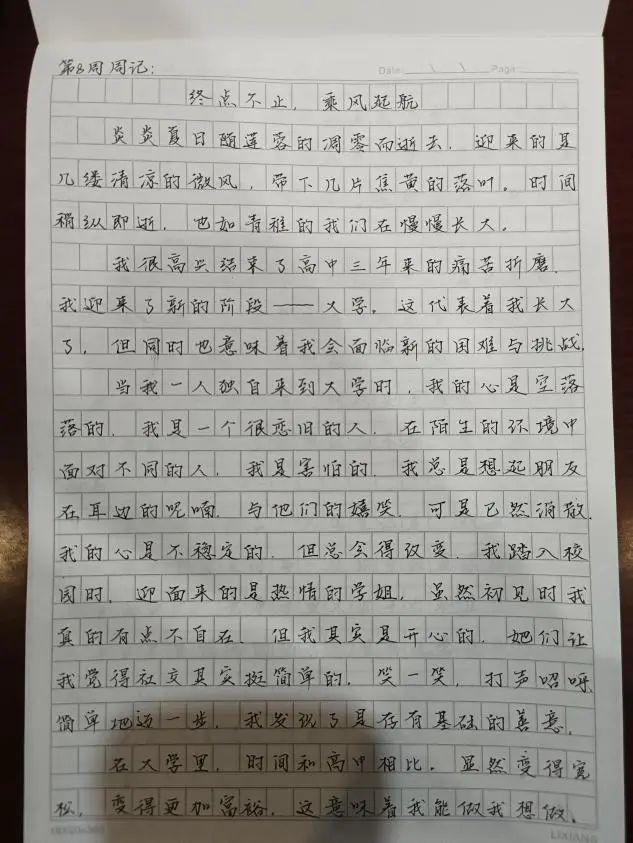 第8周周记：
Date: \ \ Page:
终点不止，乘风起航
炎炎夏日随莲蓉的凋零而逝去，迎来的是
几缕清凉的微风，带下几片焦黄的落叶。时间
稍纵即逝，也如青稚的我们在慢慢长大。
我很高兴结束了高中三年来的痛苦折磨，
我迎来了新的阶段——大学。这代表着我长大
了，但同时也意味着我会面临新的困难与挑战。
当我一人独自来到大学时，我的心是空落
落的，我是一个很恋旧的人，在陌生的环境中
面对不同的人，我是害怕的，我总是想起朋友
在耳边的呢喃，与他们的嬉笑，可是已然消散。
我的心是不稳定的，但总会得改变，我踏入校
园时，迎面来的是热情的学姐，虽然初见时我
真的有点不自在，但我其实是开心的，她们让
我觉得社交其实挺简单的，笑一笑，打声招呼，
简单地迈一步，我发现了是存有基础的善意。
在大学里，时间和高中相比，显然变得宽
松，变得更加富裕，这意味着我能做我想做，
LIXIANG